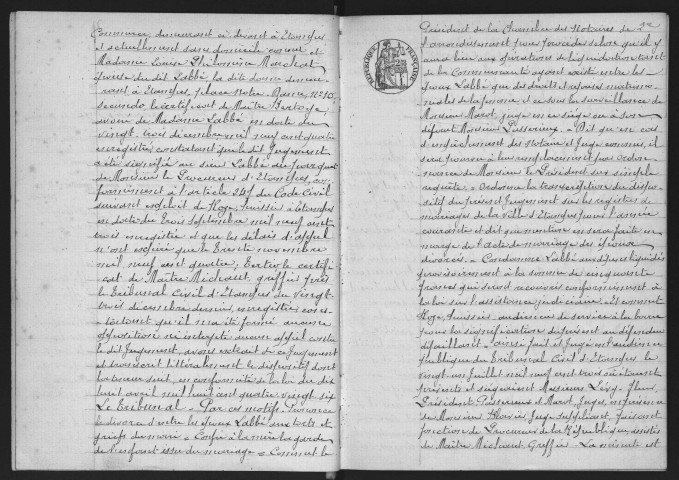 Commerce, demeurant ci-devant à Etampes
et actuellement sans domicile connu et
Madame Louise Philomène Marchat
épouse du dit Labbé la dite dame demeu-
rant à Etampes, place Notre-Dame, N° 10,
secundo le certificat de Maître
avoué de Madame Labbé en date du
vingt-trois décembre mil neuf cent quatre
enregistré, constatant que le dit Jugement
a été signifié au sieur Labbé au parquet
de Monsieur le Procureur d'Etampes, con-
formément à l'article 247 du Code Civil
suivant exploit de Huissier à Etampes
en date du trois Septembre mil neuf cent
trois enregistré et que les délais d'appel
n'ont expiré que le novembre
mil neuf cent quatre; Tertio le certifi-
cat de Maître Michaut, greffier près
le Tribunal Civil d'Etampes du vingt-
trois décembre dernier, enregistré cons-
tatant qu'il n'a été formé aucune
opposition ni interjeté aucun appel contre
le dit Jugement, avons extrait de ce Jugement
et transcrit littéralement le dispositif dont
la teneur suit, en conformité de la loi du dix
huit avril mil huit cent quatre vingt six
Le Tribunal = Par ces motifs = Prononce
le divorce d'entre les époux Labbé aux torts et
griefs du mari = Confie à la mère la garde
de l'enfant issu du mariage = Commet le
Président de la Chambre des Notaires de l'
arrondissement pour procéder selon qu'il y
aura lieu aux opérations de liquidation tant
de la Communauté ayant existé entre les
époux Labbé que des droits et reprises matrimo-
niales de la femme et ce sous la surveillance de
Monsieur Marot, juge en ce siège ou à son
défaut Monsieur Passerieux = Dit qu'en cas
d'empêchement des Notaire et Juge commis, il
sera pourvu à leur remplacement par ordon-
nance de Monsieur le Président sur simple
requête = Ordonne la transcription du dispo-
sitif du présent Jugement sur les registres de
mariages de la Ville d'Etampes pour l'année
courante et dit que mention en sera faite en
marge de l'acte de mariage des époux
divorcés = Condamne Labbé aux dépens liquidés
provisoirement à la somme de cinquante
francs qui seront recouvrés conformément à
la loi sur l'assistance judiciaire = Et commet
Huissier audiencier de service à la barre
pour la signification du présent au défendeur
défaillant = ainsi fait et jugé en l'audience
publique du Tribunal Civil d'Etampes le
vingt un juillet mil neuf cent trois où étaient
présents et siégeaient Messieurs
Président Passerieux et Marot, Juges, en présence
de Monsieur Juge Suppléant faisant
fonction de Procureur de la République, assistés
de Maître Michaut, Greffier = La minute est
RÉPUBLIQUE FRANÇAISE